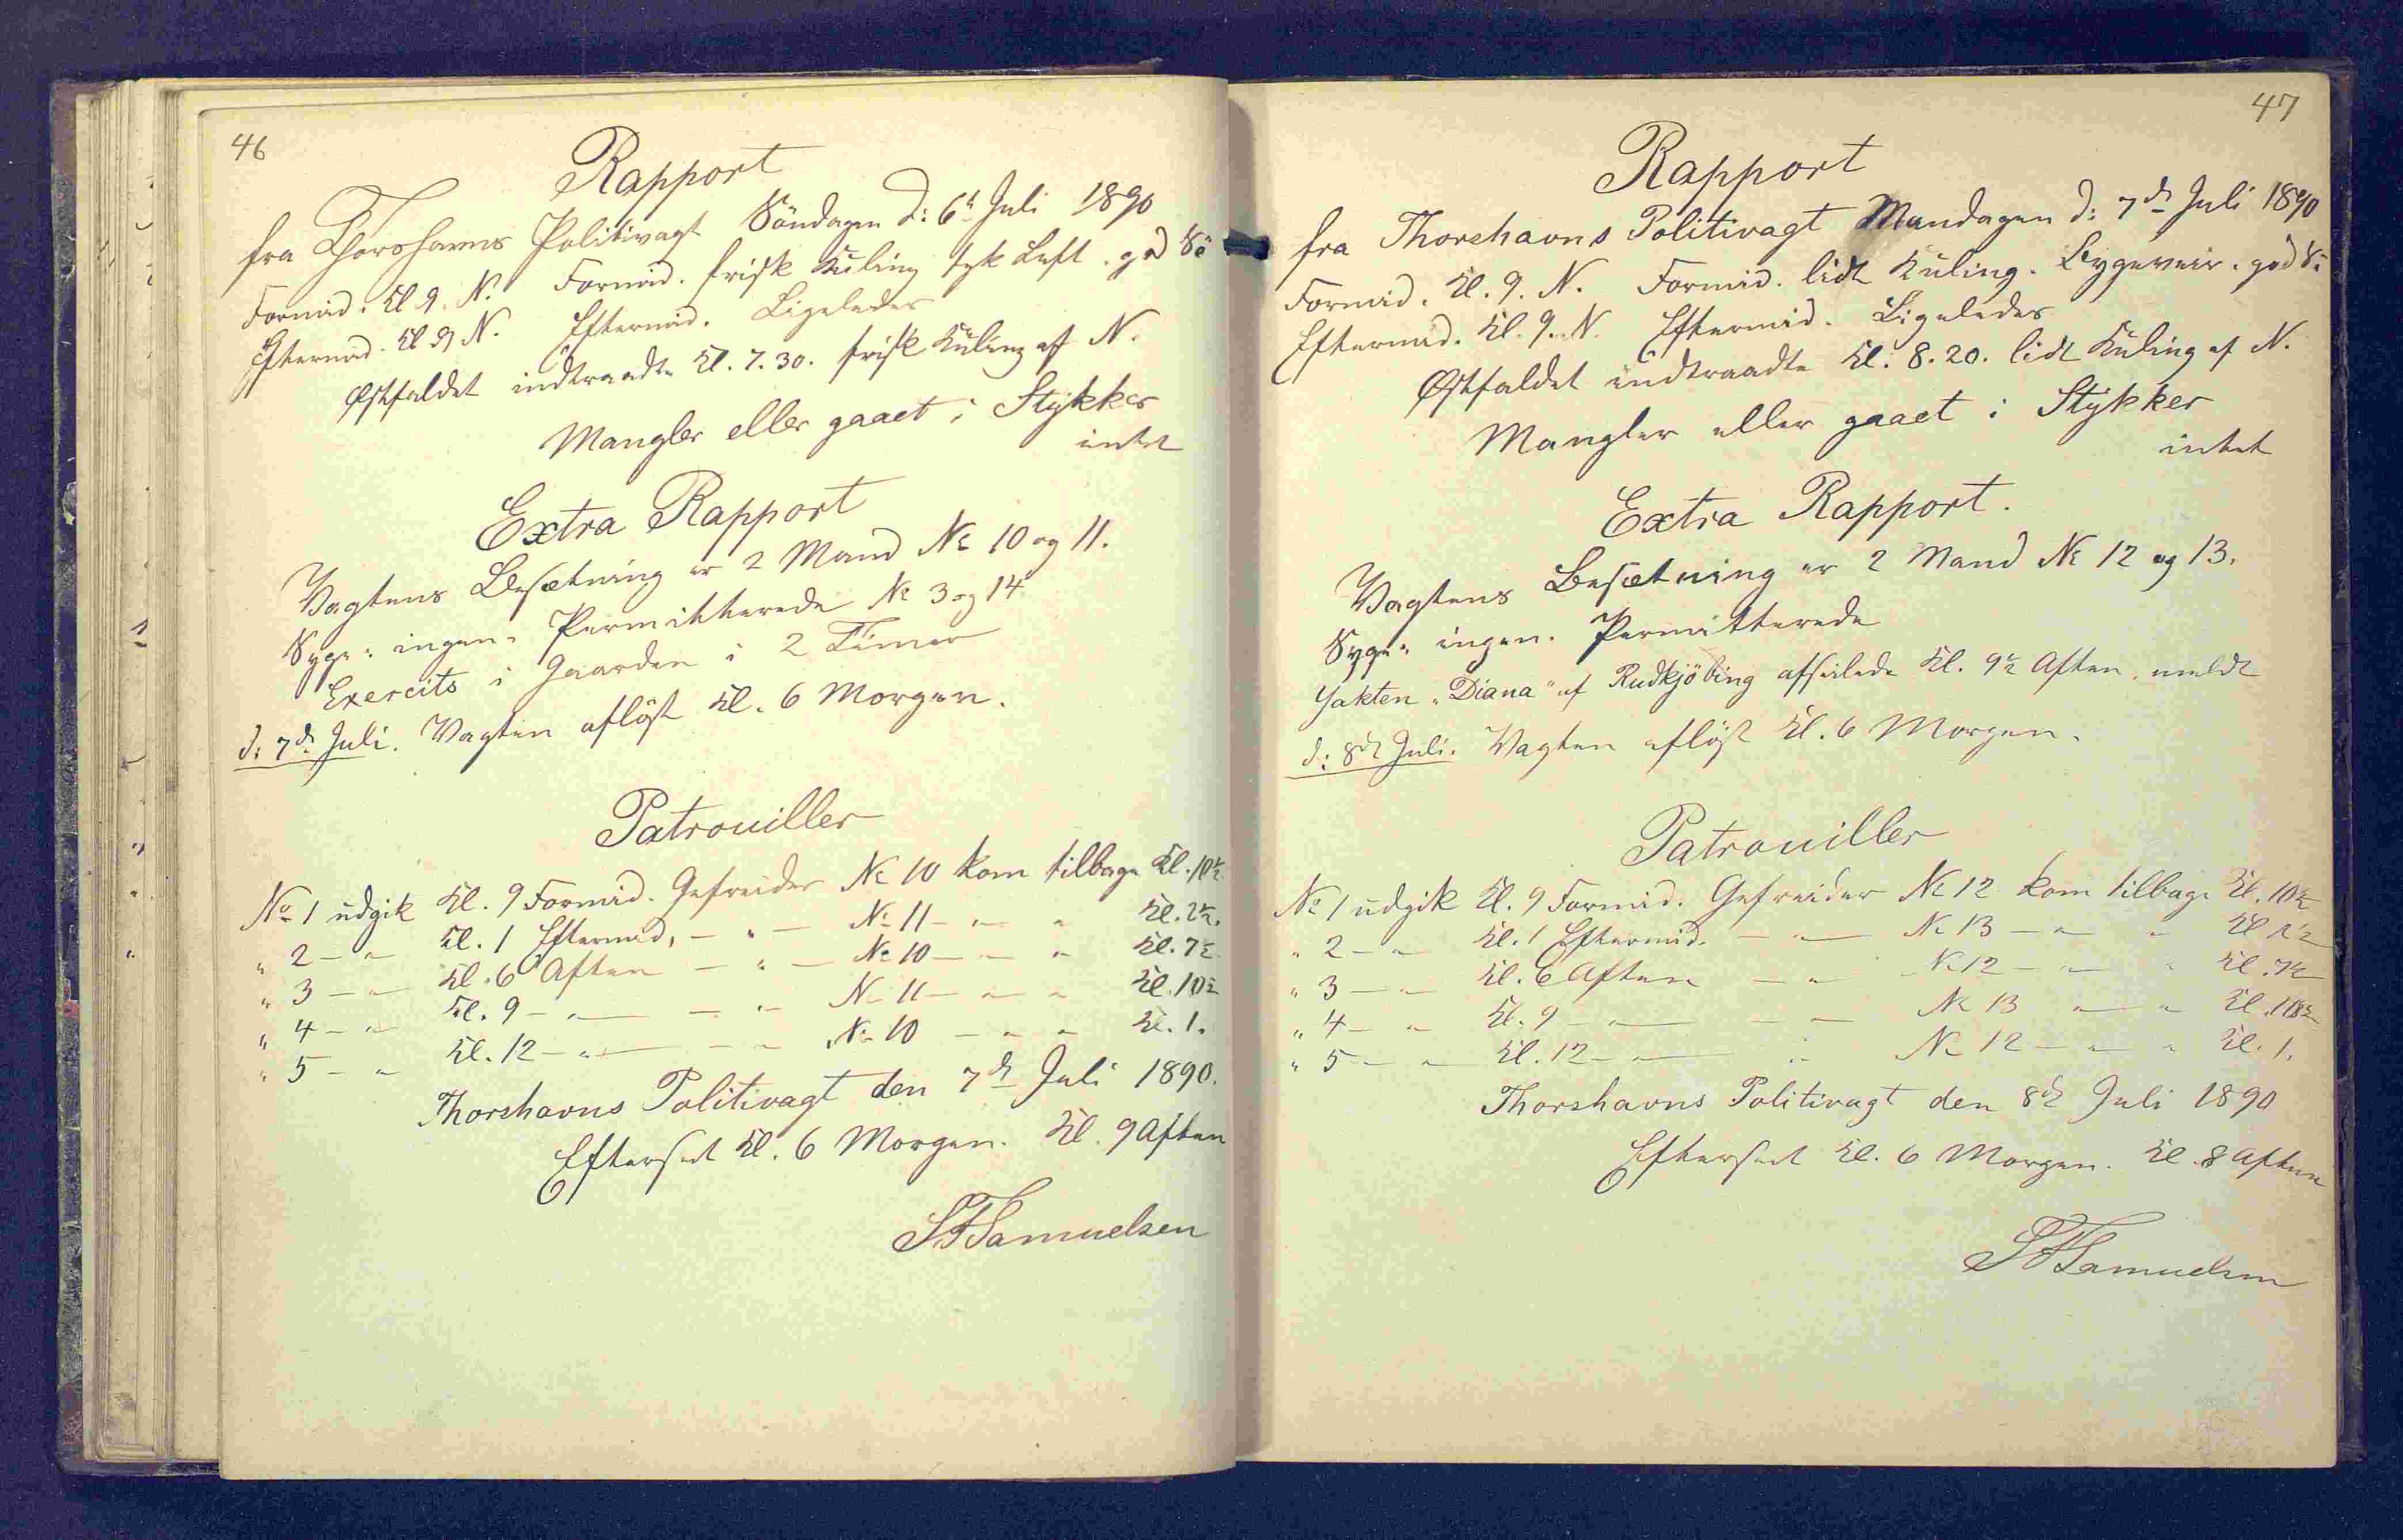 46
Rapport
fra Thorshavns Politivagt Söndagen d: 6te Juli 1890
Formid. Kl 9. N. Formid. frisk Kuling tyk Luft. god Sö
Eftermid. Kl 9 N. Eftermid. Ligeledes
Østfaldet indtraadte Kl. 7.30. frisk Kuling af N.
Mangler eller gaaet i Stykker
intet
Extra Rapport
Vagtens Besætning er 2 Mand No 10 og 11.
Syge: ingen. Permitterede No 3 og 14
Exercits i Gaarden i 2 Timer
d: 7de Juli. Vagten aflöst Kl. 6 Morgen.
Patrouiller
No 1 udgik Kl. 9 Formid. Gefreider No 10 kom tilbage Kl. 10½
" 2 — " Kl. 1 Eftermid, — " — No 11 — " — " Kl. 2½.
" 3 — " — Kl. 6 Aften — " — No 10 — " — " Kl. 7½
" 4 — " Kl. 9 — " — — " — No 11 — " — " Kl. 10½
" 5 — " Kl. 12 — " — — " No 10 — " — " Kl. 1.
Thorshavns Politivagt den 7de Juli 1890.
Efterset Kl. 6 Morgen. Kl. 9 Aften
Samuelsen
47
Rapport
fra Thorshavns Politivagt Mandagen d: 7de Juli 1890
Formid. Kl. 9. N. Formid. lidt Kuling. Bygeveir. god Sö
Eftermid. Kl. 9. N. Eftermid. Ligeledes
Østfaldet indtraadte Kl. 8.20. lidt Kuling af N.
Mangler eller gaaet i Stykker
intet
Extra Rapport.
Vagtens Besætning er 2 Mand No 12 og 13.
Syge: ingen. Permitterede
Jakten "Diana" af Rudkjöbing afseilede Kl. 9½ Aften, meldt
d: 8de Juli. Vagten aflöst Kl. 6 Morgen.
Patrouiller
No 1 udgik Kl. 9 Formid. Gefreider No 12 kom tilbage Kl. 10½
" 2 — " — Kl. 1 Eftermid. — " — No 13 — " — " Kl 2½
" 3 — " Kl. 6 Aften — " No 12 — " — " Kl. 7½
" 4 — " Kl. 9 — " — — " — No 13 " — " Kl. 10½
" 5 — " Kl. 12 — " — " No 12 — " — " Kl. 1.
Thorshavns Politivagt den 8de Juli 1890
Efterset Kl. 6 Morgen. Kl. 8 Aften
Samuelsen